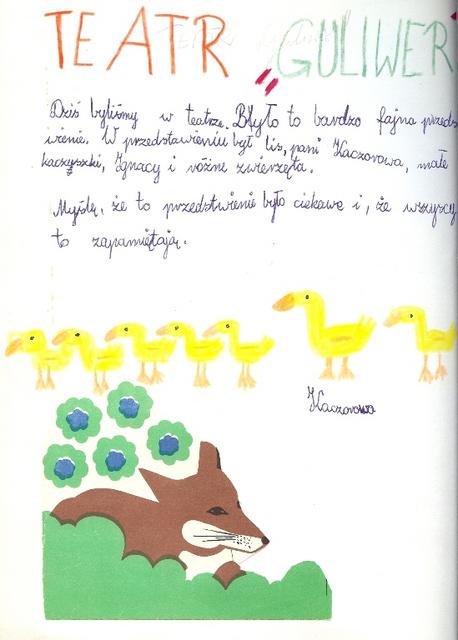 TEATR „GULIWER
Dziś byliśmy w teatrze. Błyło to bardzo fajna przeds
wienie. W przedstawieniu był lis, pani Kaczorowa, małe
kaczyszki, Ignacy i różne zwierzęta.
Myślę, że to przedstwienie było ciekawe i, że wszyscy
to zapamiętają.
Kaczorowa